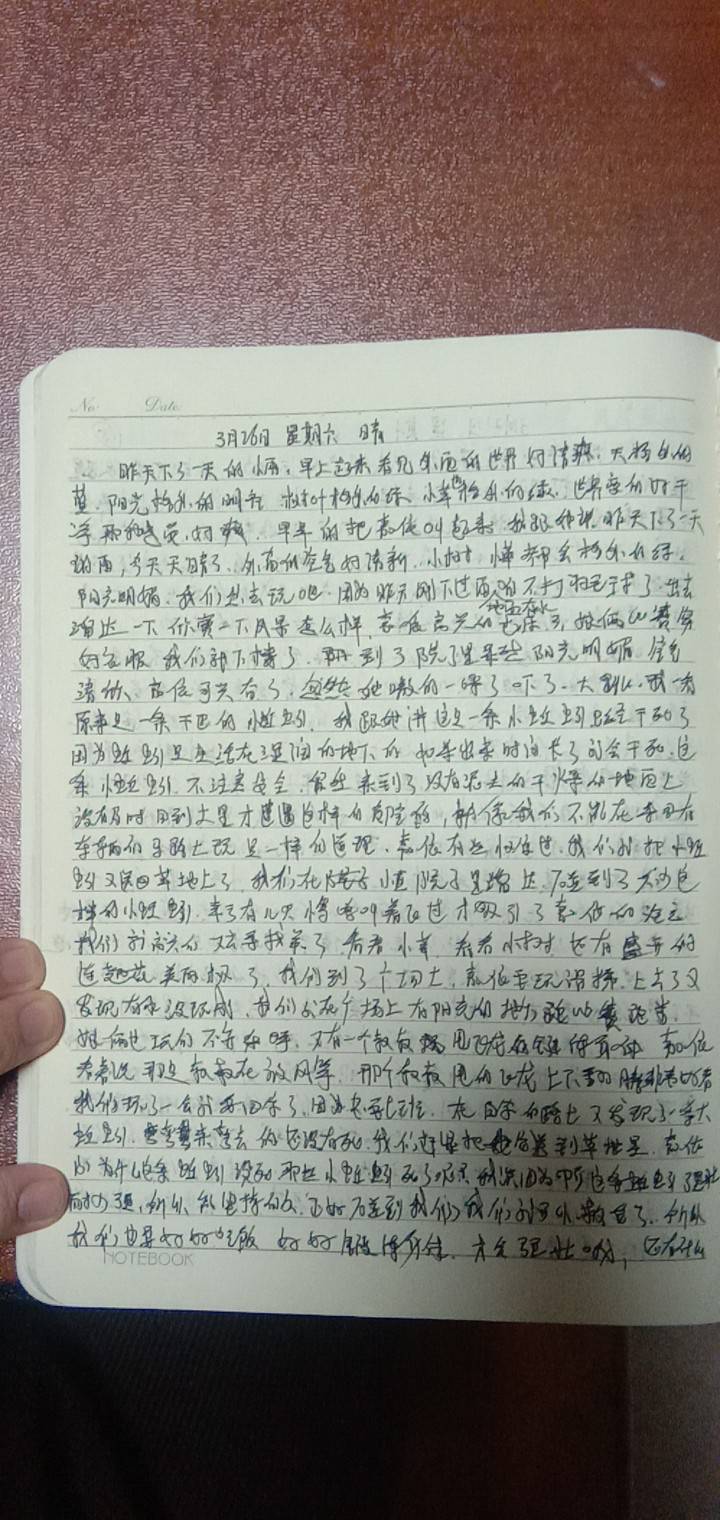 No. Date.
3月26日 星期六 晴
昨天下了一天的小雨,早上起来看见外面的世界好清爽,天格外的
蓝,阳光格外的明亮 树叶格外的绿 小草也格外的绿,世界变的好干
净 早早的把嘉依叫起来 我跟他说 昨天下了一天
的雨,今天天晴了,外面的空气好清新,小树 小草都会格外的绿,
阳光明媚,我们出去玩吧,因为昨天刚下过雨咱不打羽毛球了,出去
溜达一下 你 一下风景怎么样,嘉依高兴的
好衣服 我们就下楼了,到了院里果然阳光明媚 空气
清 嘉依可兴奋了,忽然她嗷的一嗓子 吓了一大跳,我一看
原来是一条干巴的小蚯蚓,我跟她讲这是一条小蚯蚓 已经干死了
因为蚯蚓是生活在湿润的地下的 如果出来时间长了就会干死,这
条小蚯蚓,不注意安全,自己来到了没有泥土的干燥的地面上
没有及时回到土里才遭遇这样的 就像我们不能在
车辆的马路上玩 是一样的道理,嘉依 我们就把小蚯
蚓 回草地上了,我们在院子里溜达,又遇到了 这
样的小蚯蚓,幸亏有几只小鸟喳喳叫着飞过 才吸引了嘉依的注意
我们就高兴的 了 看看小草,看看小树 还有盛开的
美丽极了,我们到了广场上,嘉依要玩滑梯,上去了又
发现 我们就在广场上有阳光的地方跑
她俩也玩的不亦乐乎,又有一个叔叔 甩飞龙在锻炼身体 嘉依
看着说 那是叔叔在放风筝,那个叔叔甩的飞龙上下 好看
我们玩了一会就要回家了,因为 要上班,在回家的路上又发现了一条大
蚯蚓, 还没有死,我们赶紧把它 送到草地里,嘉依
问为什么这条蚯蚓没死 那些小蚯蚓死了呢?我说因为 这条蚯蚓强壮
力强,所以能坚持的久,正好又遇到我们 我们就 了,所以
我们也要好好吃饭 好好锻炼身体,才会强壮哦,还有什么
NOTEBOOK